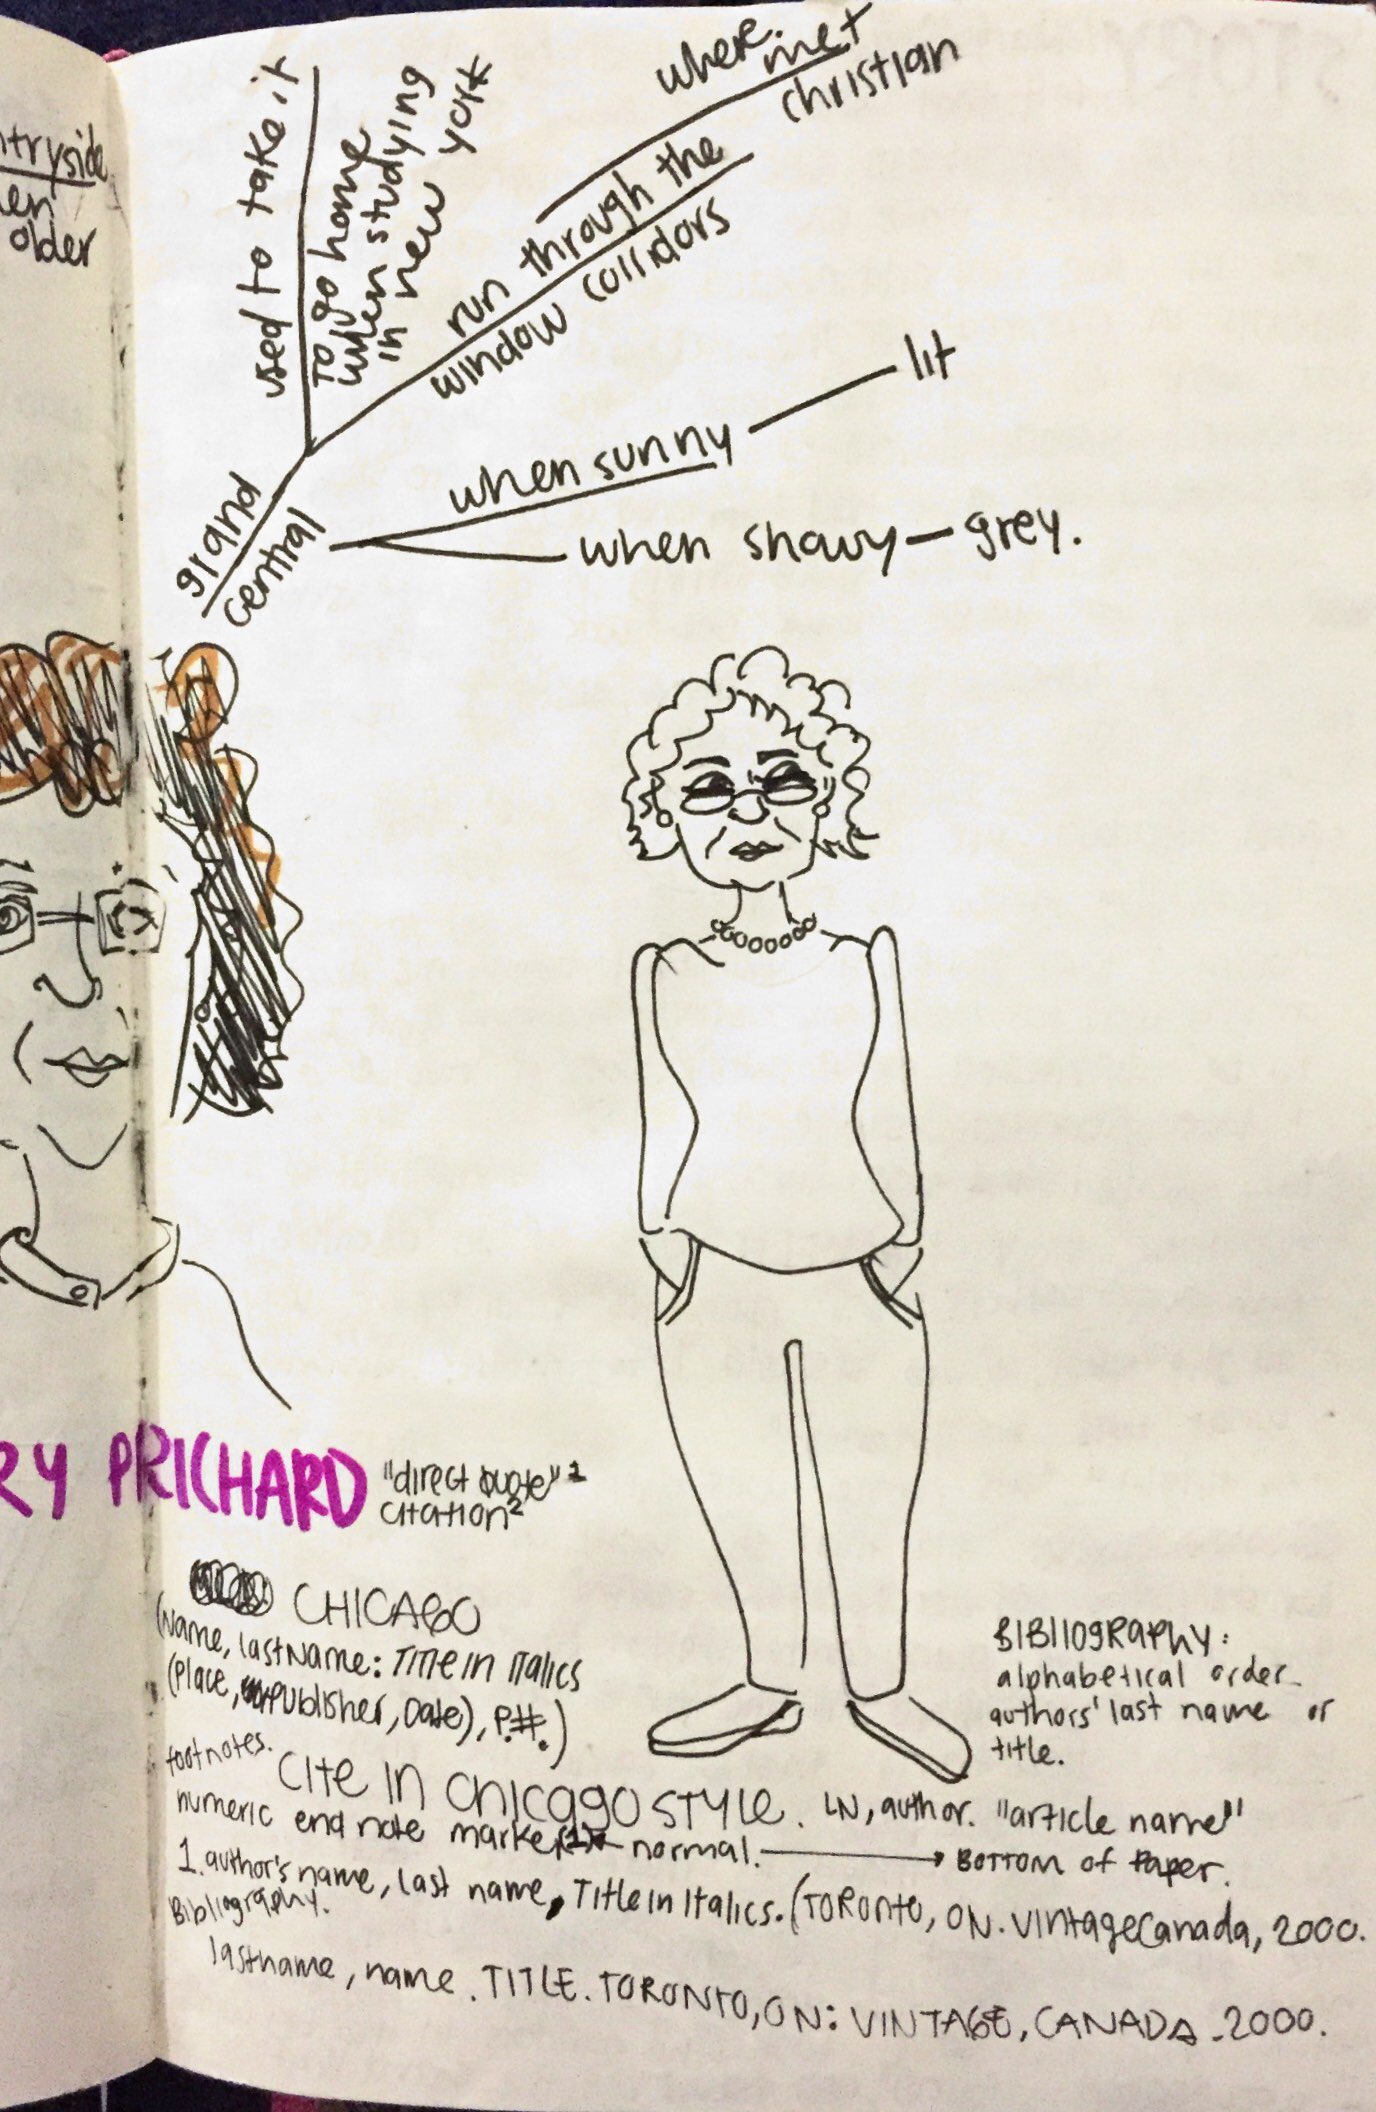 ntryside
en
older
used to take it
to go home
when studying
in new york
where met
christian
run through the
window corridors
when sunny — lit
when snowy — grey.
grand
central
RY PRICHARD
"direct quote" 1
citation 2
CHICAGO
(Name, LastName: Title in Italics
(Place, Publisher, Date), P.#.)
footnotes.
Cite in Chicago STYLE. LN, author. "article name"
numeric end note marker (1) ← normal. → BOTTOM OF Paper.
1. author's name, last name, Title in Italics. (TORONTO, ON. Vintage Canada, 2000.
Bibliography.
lastname, name. TITLE. TORONTO, ON: VINTAGE, CANADA. 2000.
BIBLIOGRAPHY:
alphabetical order.
authors' last name or
title.